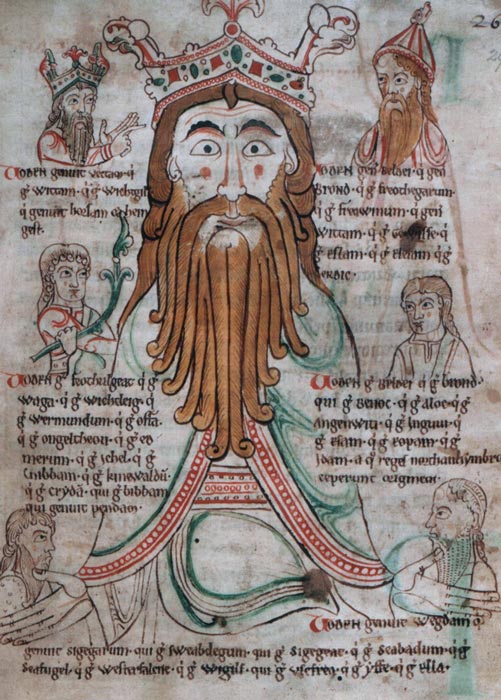 26
Uoden genuit vectam · q̄
g̃ Wittam · q̄ g̃ Wichtgils
q̄ genuit hoesam & hen
gest ·
Uoden gen̄ Belder · q̄ gen̄
Brond · q̄ g̃ freothegarum
q̄ g̃ frewinum · q̄ gen̄
Wittam · q̄ g̃ · q̄
g̃ eslam · q̄ g̃ q̄ g̃
Uoden g̃ feothulgeat · q̄ g̃
Waga · q̄ g̃ Wichtleig · q̄ g̃
g̃ Wermundum · q̄ g̃ offa
q̄ g̃ ongeltheou · q̄ g̃ eo
merum · q̄ g̃ Ichel · q̄ g̃
Cnibbam · q̄ g̃ kinewaldū
q̄ g̃ cryda · qui g̃ bibbam
qui genuit pendam ·
Uoden g̃ Belder · q̄ g̃ Brond ·
qui g̃ Benoc · q̄ g̃ aloc · q̄ g̃
angenwit · q̄ g̃ Inguui · q̄
g̃ esam · q̄ g̃ eopam · q̄ g̃
Idam · a q̄ reges northanhymbrorum
ceperunt originem ·
Uoden genuit Wegdam q̄
genuit sigegarum · qui g̃ swebdegum · qui g̃ sigegeat · q̄ g̃ seabadum · q̄ g̃
seafugel · q̄ g̃ westerfalcne · q̄ g̃ Wigils · qui g̃ uscfrey · q̄ g̃ yffe · q̄ g̃ ella ·